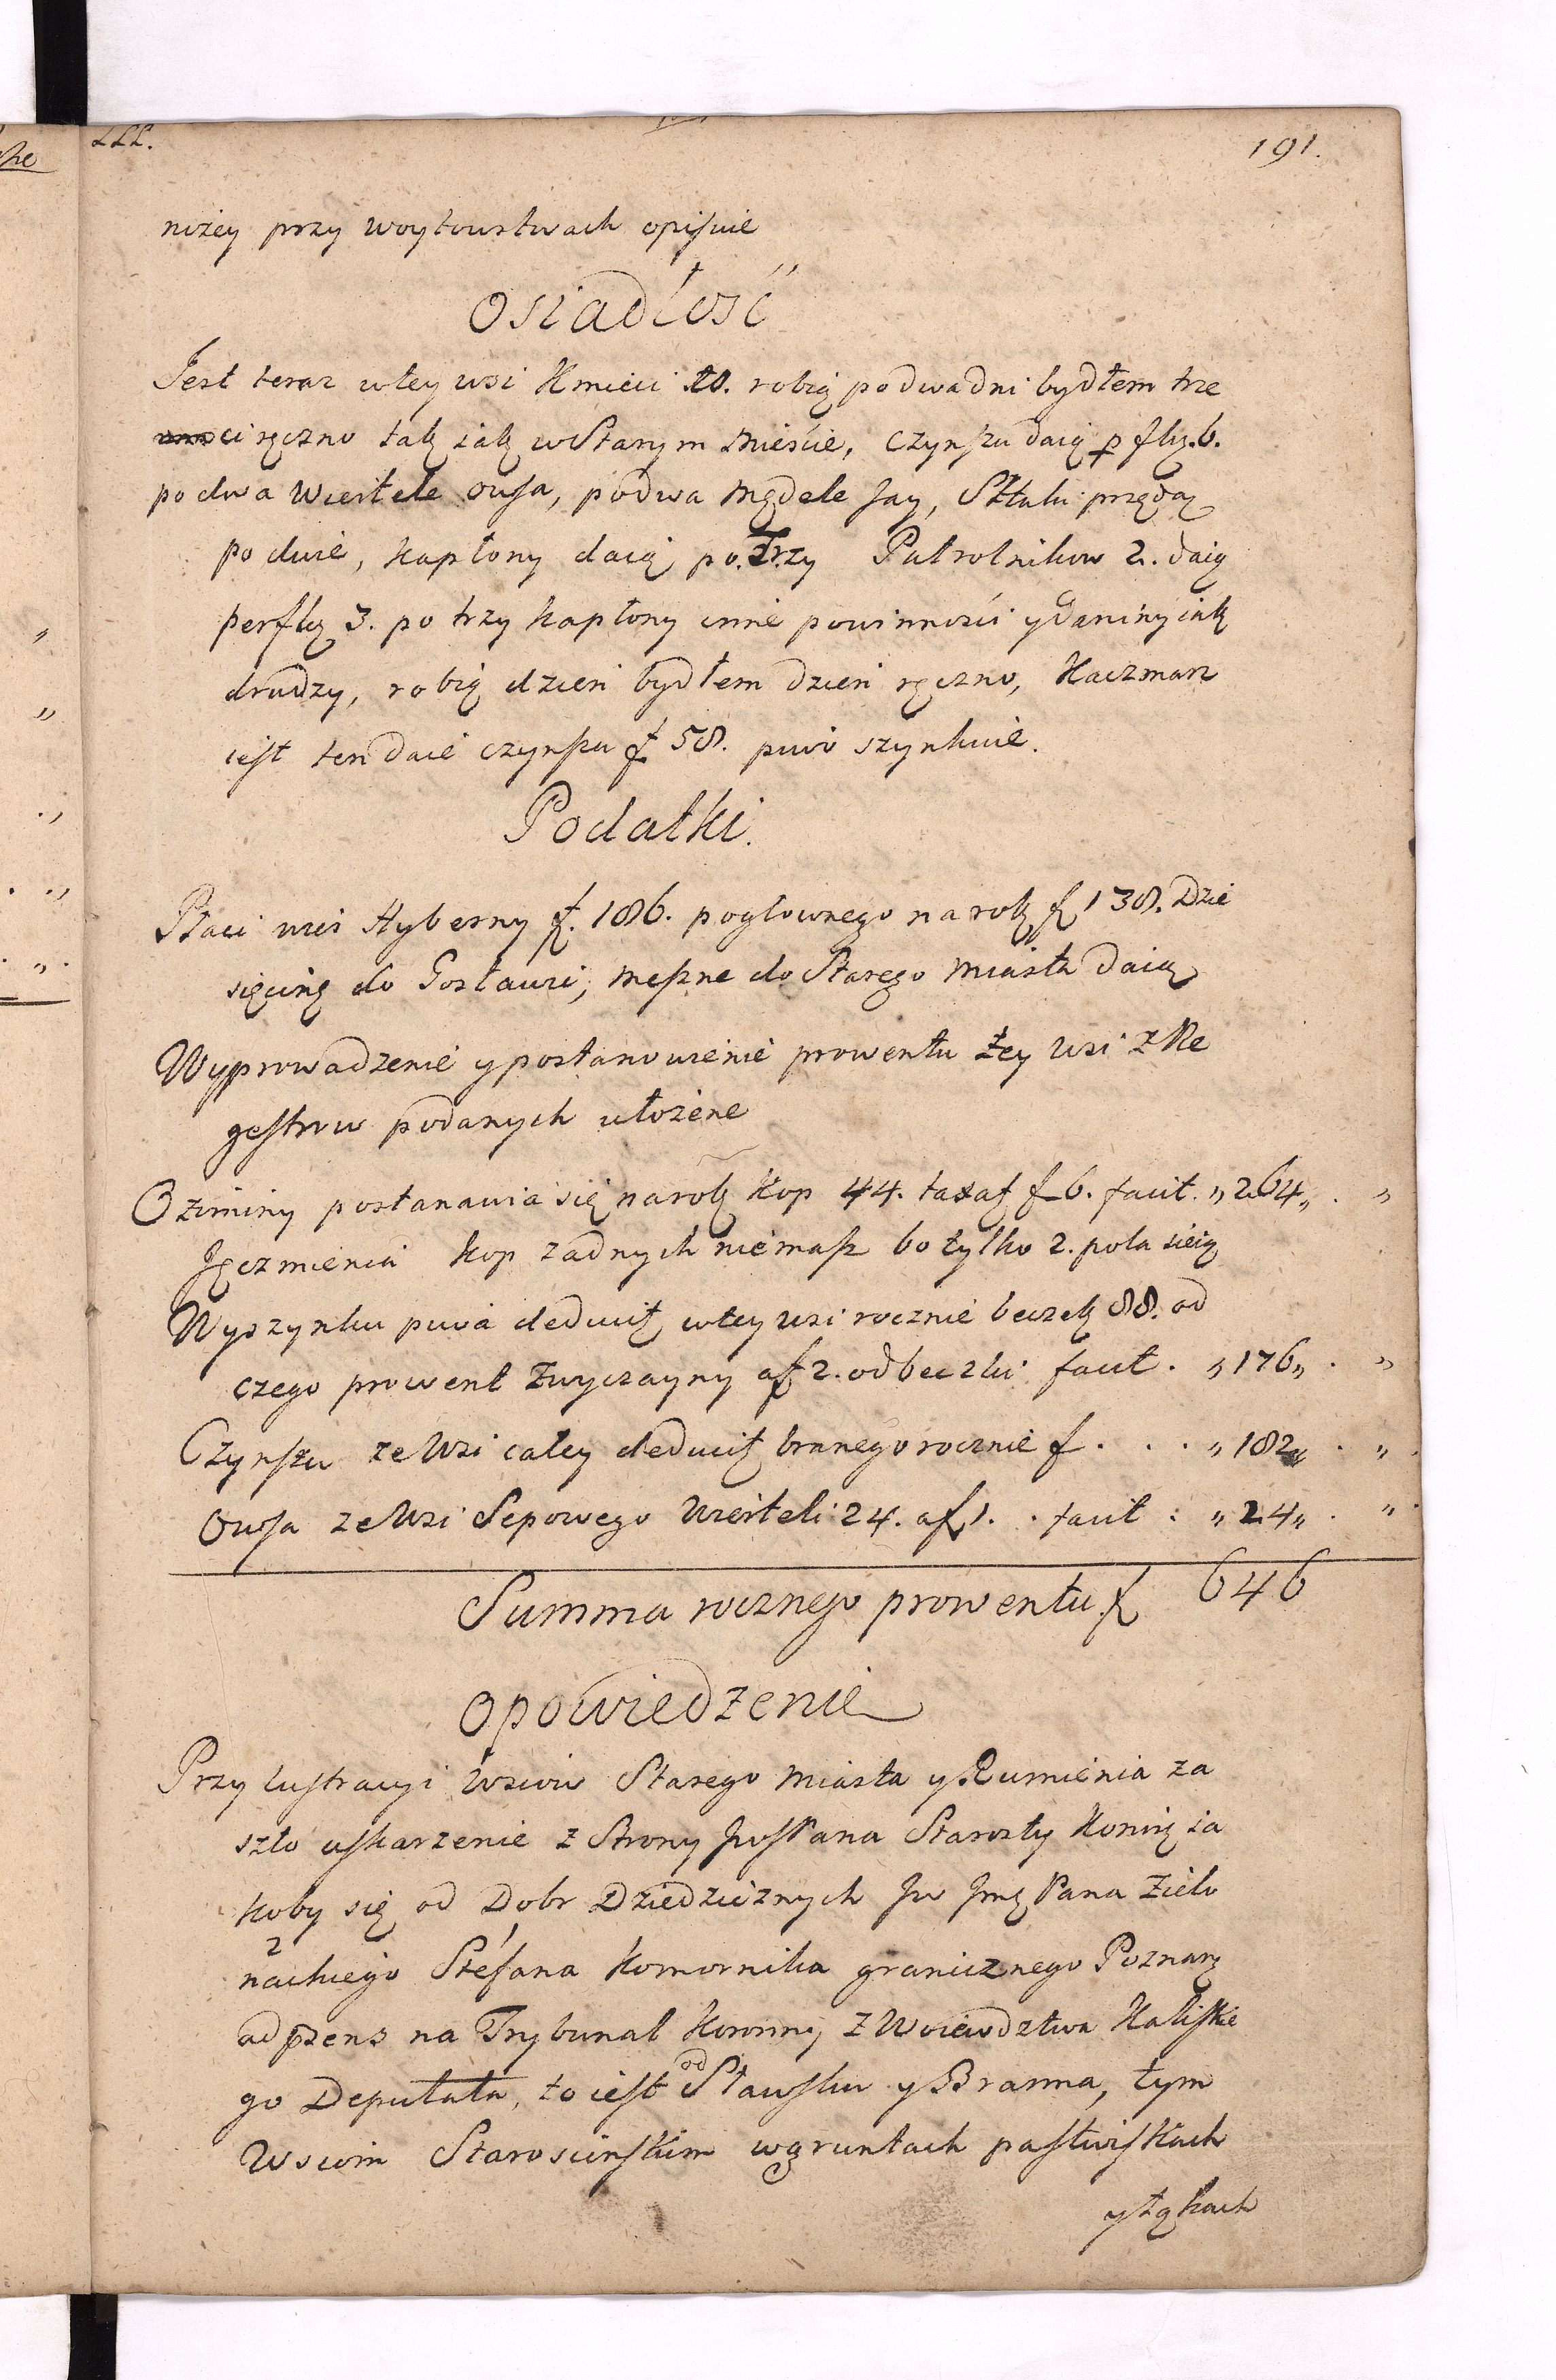 LLL. 191.
niżey przy woytowstwach opisuie
Osiadłość
Jest teraz w tey wsi Kmieci 10. robią po dwa dni bydłem trze
ci ręczno tak iak w Starym Mieście, czynszu daią p flg. 6.
po dwa Wiertele owsa, po dwa Mędele Jay, Sztuki przędą
po dwie, kapłony daią po. Trzy Pułrolnikow 2. daią
per flg 3. po trzy kapłony inne powinności y daniny iak
drudzy, robią dzien bydłem dzien ręczno, Kaczmarz
iest ten daie czynszu f 58. piwo szynkuie.
Podatki.
Płaci wieś Hyberny f. 186. pogłownego na rok f 138. Dzie
sięcinę do Gosławic, meszne do Starego Miasta daią
Wyprowadzenie y postanowienie prowentu tey wsi z Re
gestrow podanych ułożene
Oziminy postanawia się na rok kop 44. taxa f 6. facit. „ 264 „ . „
Jęczmienia kop żadnych niemasz bo tylko 2. pola sieią
Wyszynku piwa deducit w tey wsi rocznie beczek 88. od
czego prowent zwyczayny a f 2. od beczki facit . „ 176 „ . „
Czynszu ze Wsi całey deducit branego rocznie f . . . „ 182 „ . „ .
Owsa ze Wsi Sepowego Wierteli 24. a f 1. . facit : „ 24 „ . „ .
Summa rocznego prowentu f 646
Opowiedzenie
Przy lustracyi Wsiow Starego Miasta y Rumienia za
szło uskarzenie z Strony Pana Starosty Konin ia
koby się od Dobr Dziedzicznych Jw Jmę Pana Zielo
nackiego Stefana Komornika granicznego Poznan
ad praens na Trybunał Koronny z Woiewodztwa Kaliskie
go Deputata, to iest od Sławsku y Branna, tym
Wsiom Starościnskim w gruntach pastwiskach
y łąkach